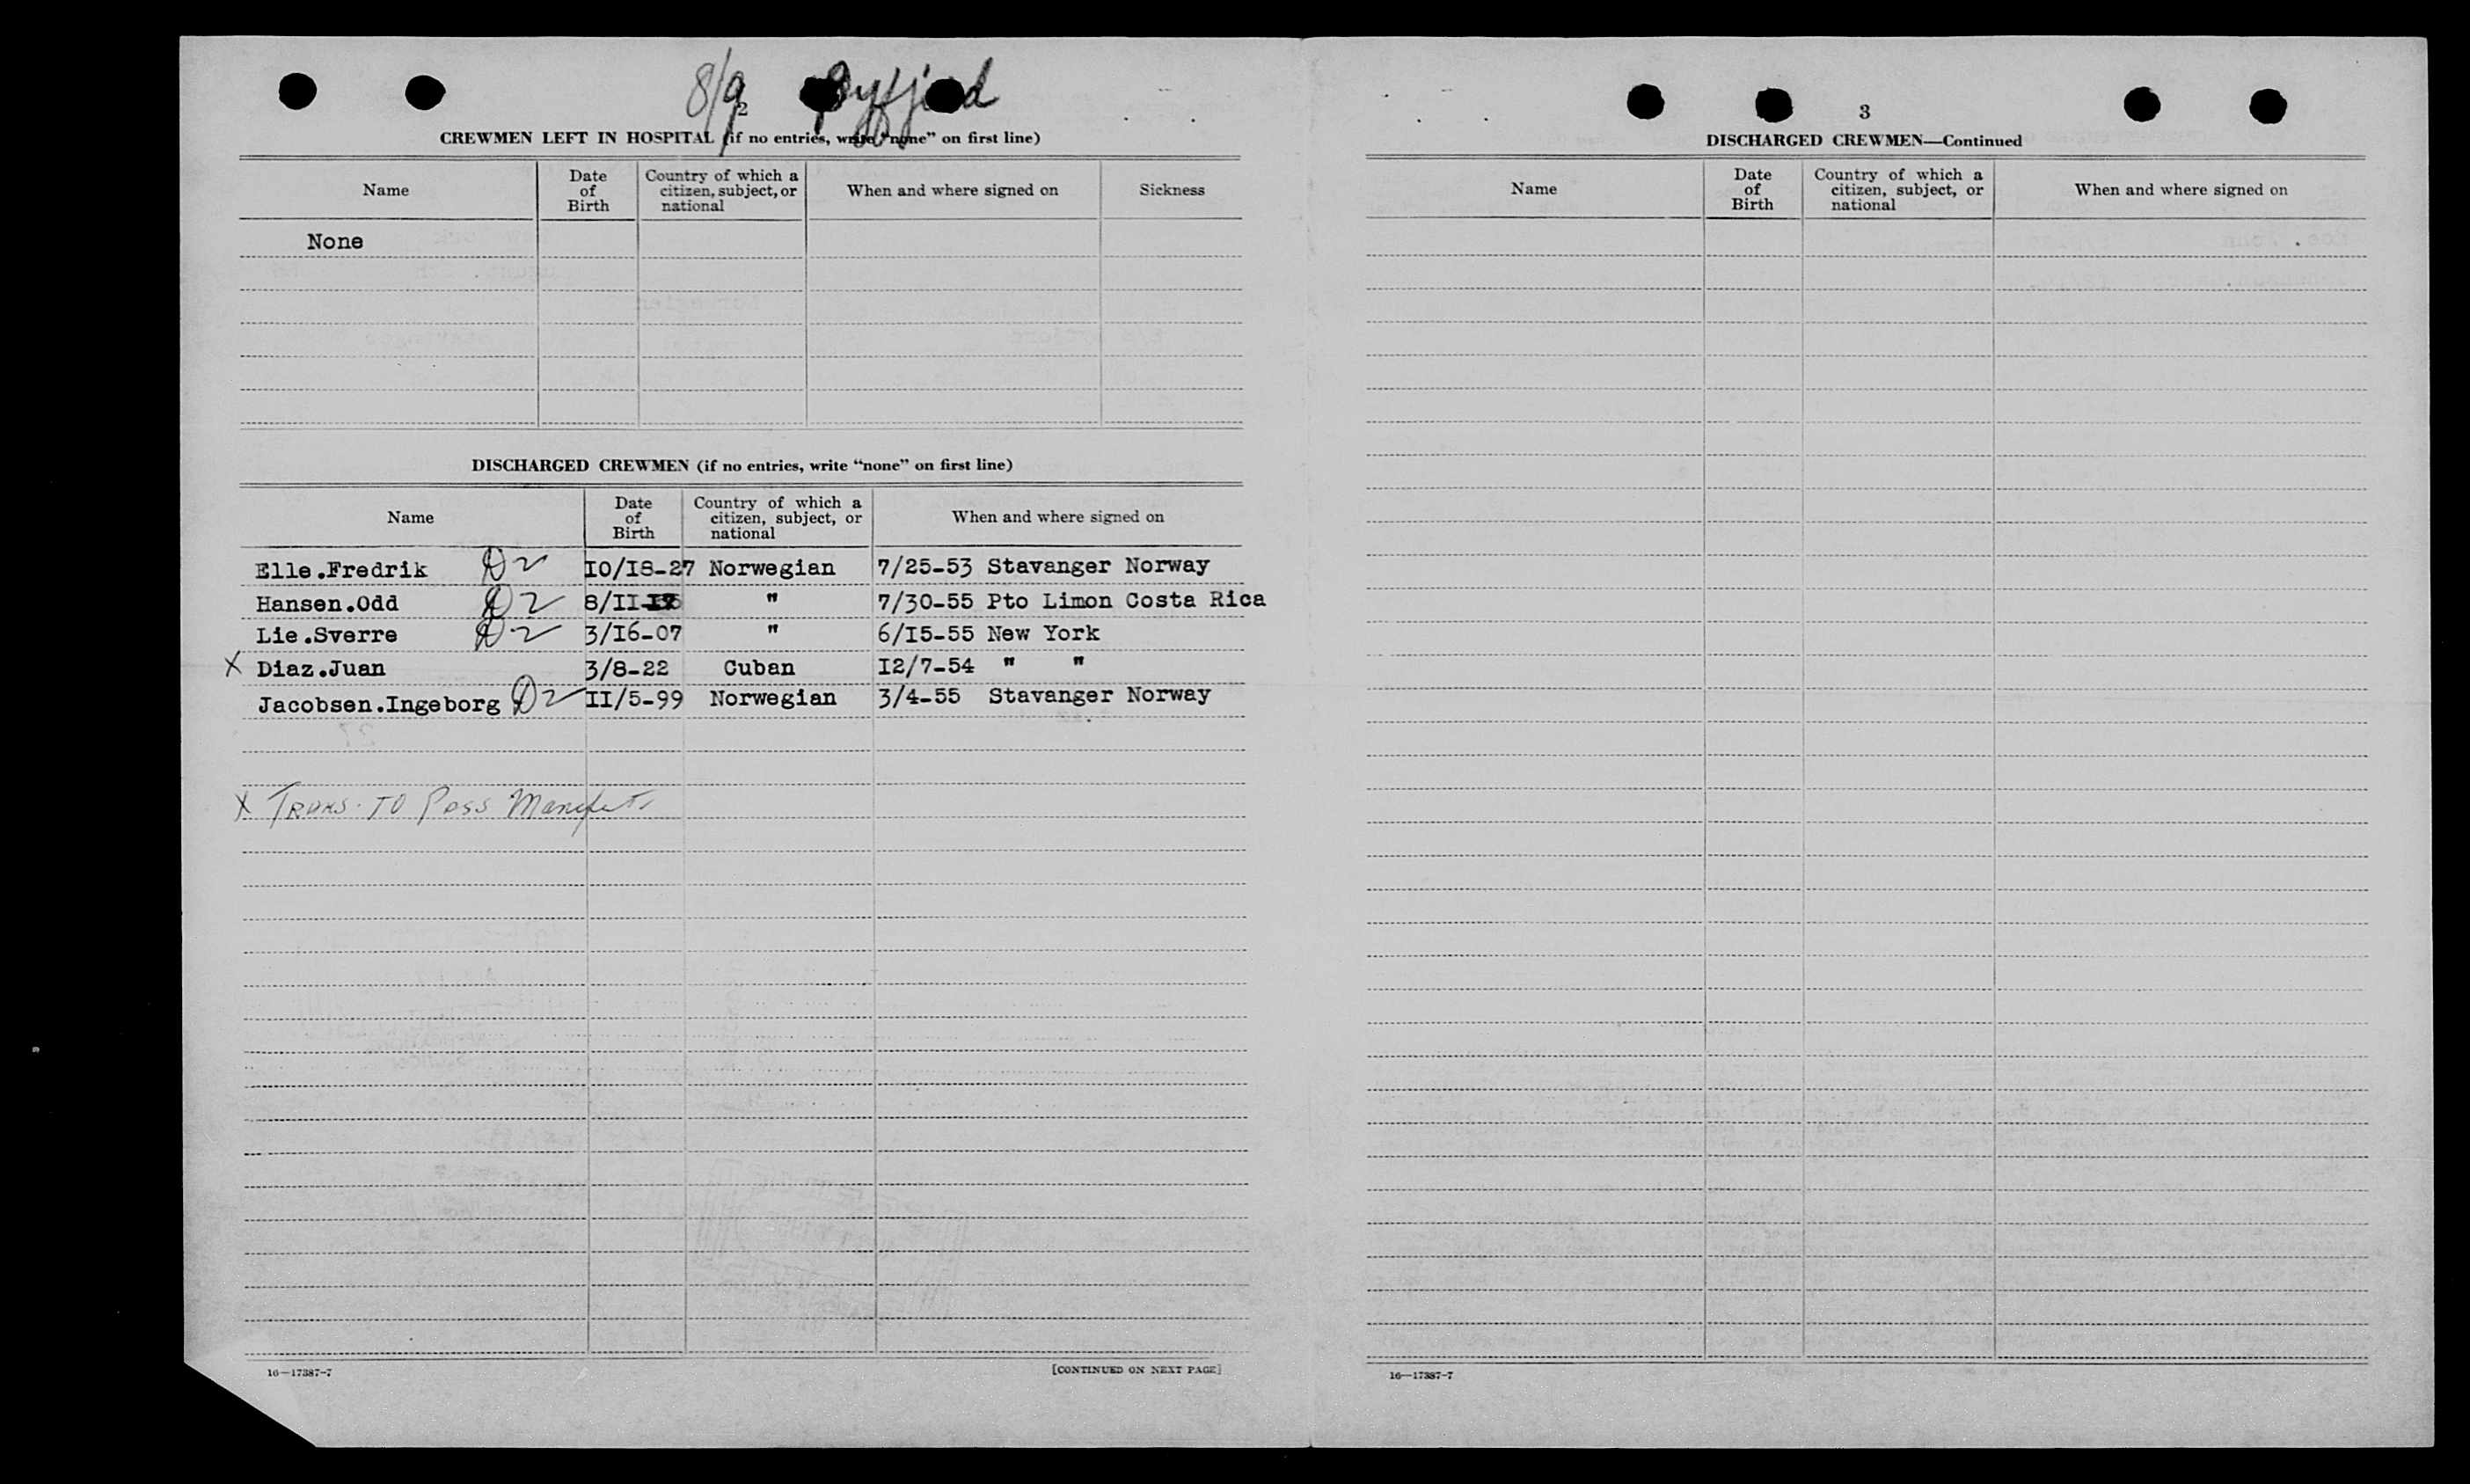 8/9 Byfjord
2
CREWMEN LEFT IN HOSPITAL (if no entries, write “none” on first line)
Name Date of Birth Country of which a citizen, subject, or national When and where signed on Sickness
None
DISCHARGED CREWMEN (if no entries, write “none” on first line)
Name Date of Birth Country of which a citizen, subject, or national When and where signed on
Elle.Fredrik D2 IO/I8-27 Norwegian 7/25-53 Stavanger Norway
Hansen.Odd D2 8/II " 7/30-55 Pto Limon Costa Rica
Lie.Sverre D2 3/I6-07 " 6/I5-55 New York
X Diaz.Juan 3/8-22 Cuban I2/7-54 " "
Jacobsen.Ingeborg D2 II/5-99 Norwegian 3/4-55 Stavanger Norway
X Trans. to Pass Manifest
16—17387-7 [CONTINUED ON NEXT PAGE]
3
DISCHARGED CREWMEN—Continued
Name Date of Birth Country of which a citizen, subject, or national When and where signed on
16—17387-7